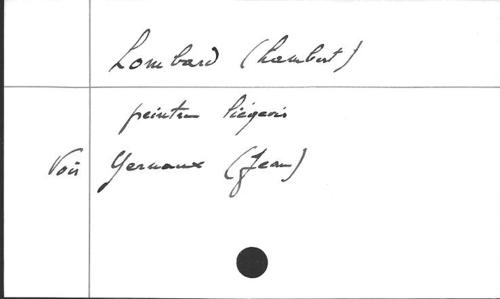 Lombard (Lambert)
peintre liégeois
Voir Yernaux (Jean)